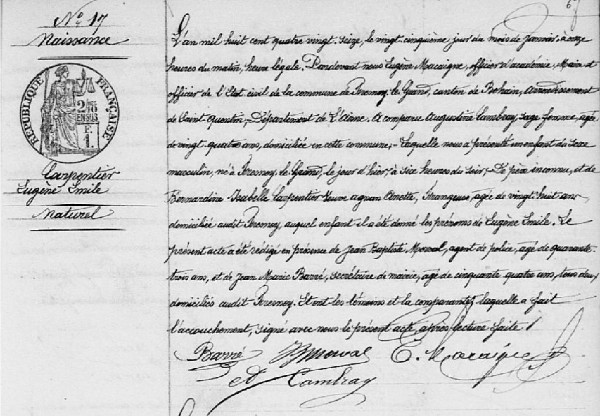 Nº 17
Naissance
RÉPUBLIQUE FRANÇAISE
Carpentier
Eugène Emile
Naturel
L'an mil huit cent quatre vingt seize, le vingt cinquième jour du mois de Janvier à onze
heures du matin, heure légale. Pardevant nous Eugène Macaigne, officier d'académie, Maire et
officier de l'Etat civil de la commune de Fresnoy le Grand, canton de Bohain, arrondissement
de Saint Quentin, Département de l'Aisne. A comparu Augustine Cambray, sage femme, agée
de vingt quatre ans, domiciliée en cette commune, Laquelle nous a présenté un enfant du sexe
masculin, né à Fresnoy le Grand, le jour d'hier, à six heures du soir, Le père inconnu, et de
Bernardine Isabelle Carpentier veuve, agée de vingt huit ans
domiciliée audit Fresnoy, auquel enfant il a été donné les prénoms de Eugène Emile. Le
présent acte a été rédigé en présence de Jean Baptiste Morval, agent de police, agé de quarante
trois ans, et de Jean Marie Barré, secrétaire de mairie, agé de cinquante quatre ans, tous deux
domiciliés audit Fresnoy. Et ont les témoins et la comparante, laquelle a fait
l'accouchement, signé avec nous le présent acte, après lecture faite
Barré Morval E. Macaigne
A Cambray